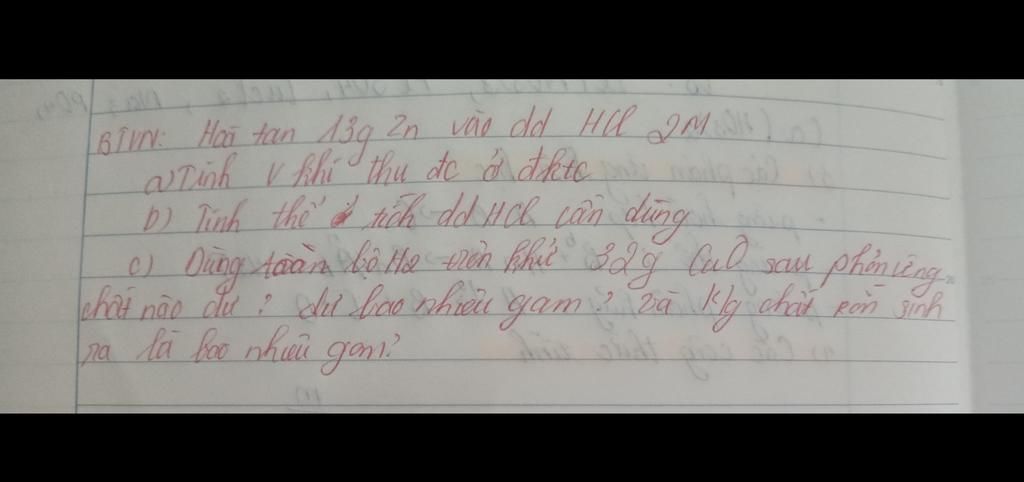 BTVN: Hoà tan 13g Zn vào dd HCl 2M
a) Tính V khí thu đc ở đktc
b) Tính thể tích dd HCl cần dùng
c) Dùng toàn bộ H2 trên khử 32g CuO sau phản ứng
chất nào dư? dư bao nhiêu gam? Và k/g chất rắn sinh
ra là bao nhiêu gam?